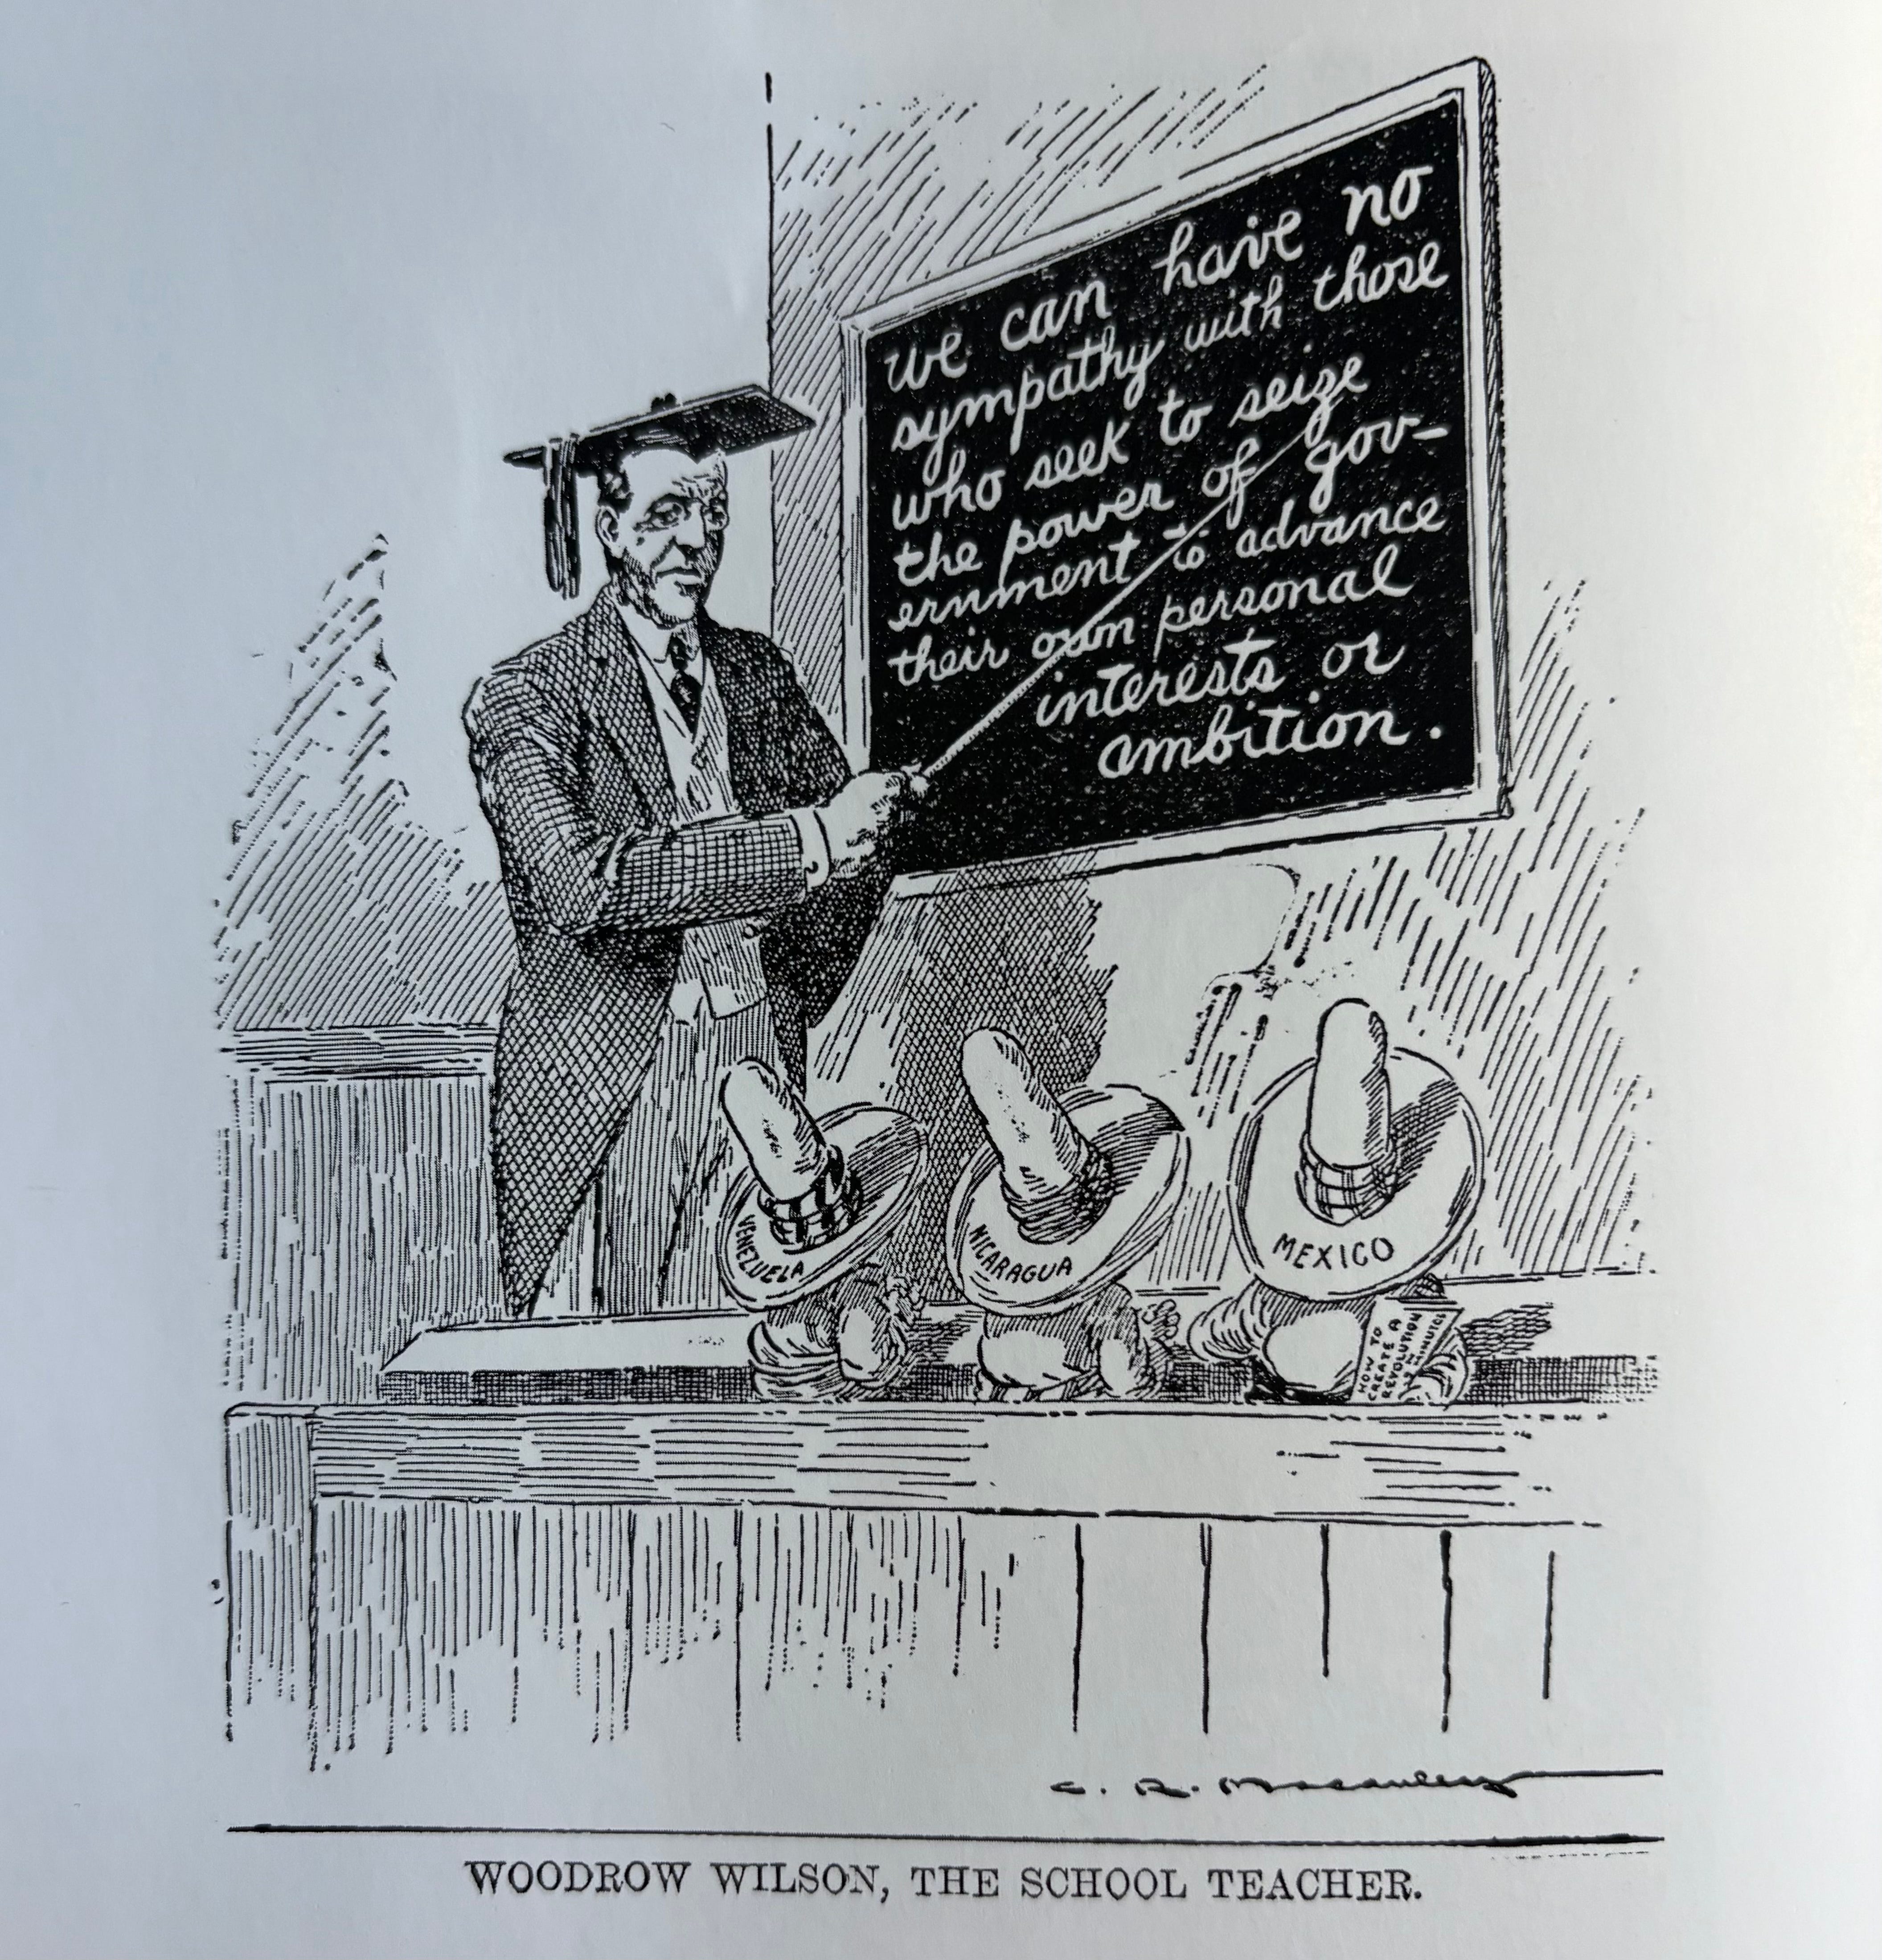 we can have no
sympathy with those
who seek to seize
the power of gov-
ernment to advance
their own personal
interests or
ambition.
VENEZUELA
NICARAGUA
MEXICO
HOW TO
CREATE A
REVOLUTION
IN
MINUTES
C. R. Macauley
WOODROW WILSON, THE SCHOOL TEACHER.